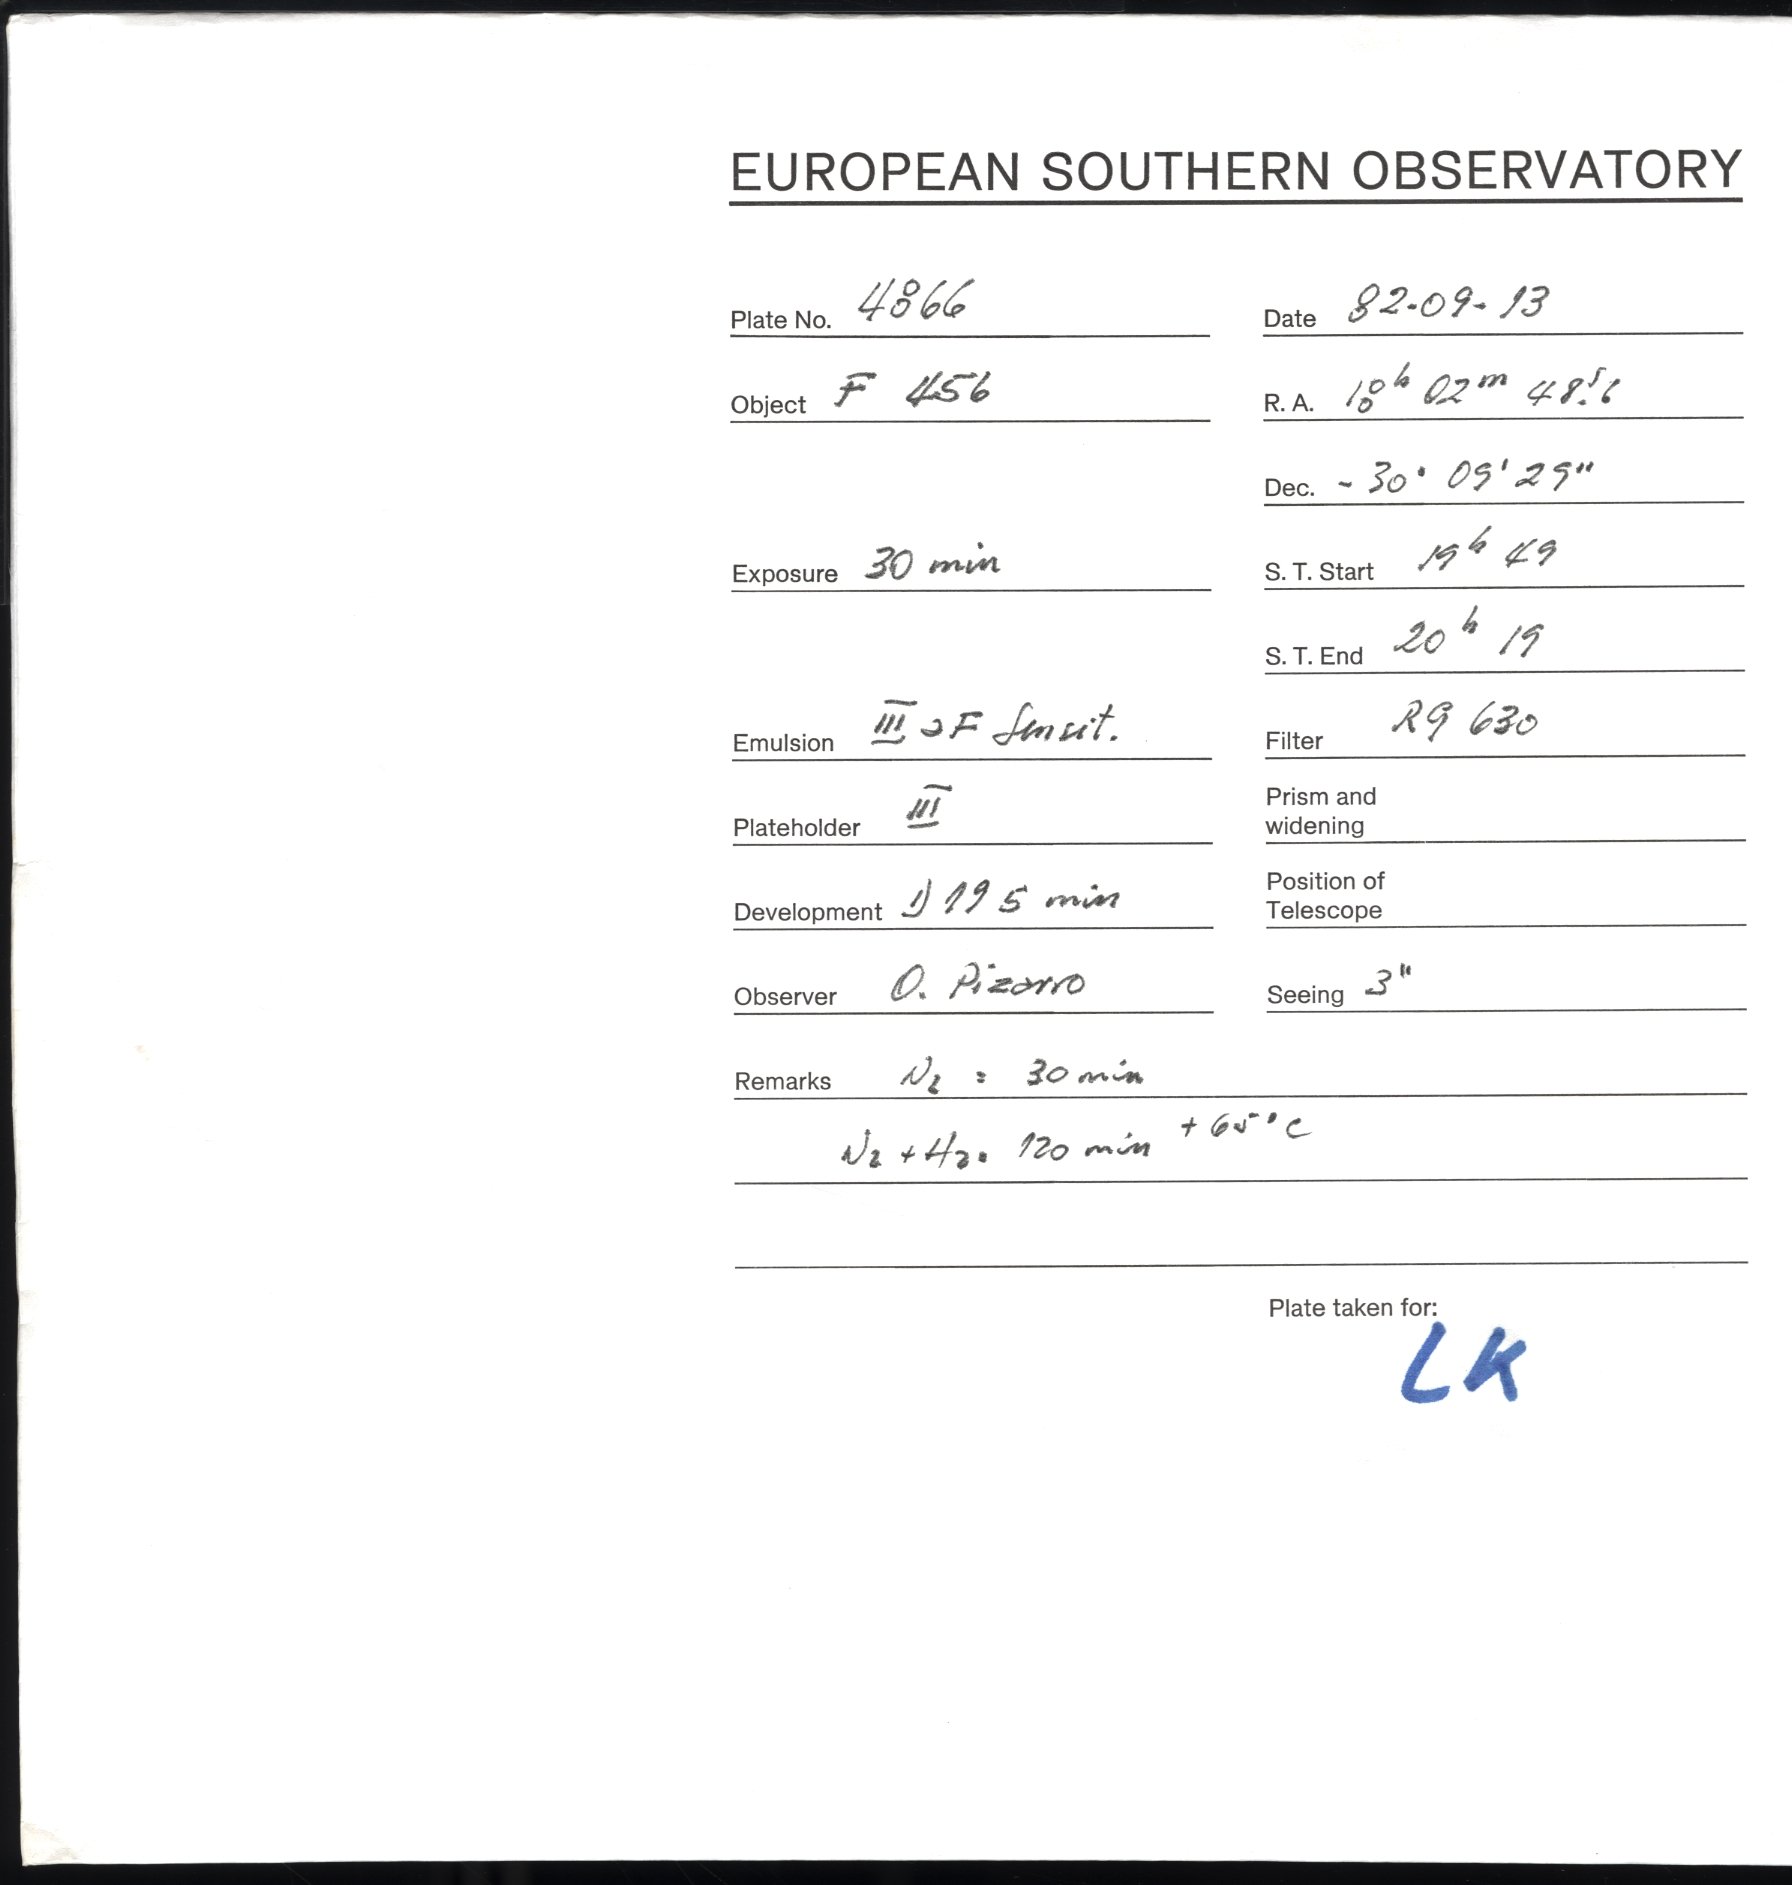 EUROPEAN SOUTHERN OBSERVATORY
Plate No. 4866
Date 82-09-13
Object F 456
R. A. 18h 02m 48s.6
Dec. - 30° 09' 29"
Exposure 30 min
S. T. Start 19h 49
S. T. End 20h 19
Emulsion III aF Sensit.
Filter RG 630
Plateholder III
Prism and
widening
Development D19 5 min
Position of
Telescope
Observer O. Pizarro
Seeing 3"
Remarks N2 : 30 min
N2 + H2: 120 min + 65°C
Plate taken for:
LK